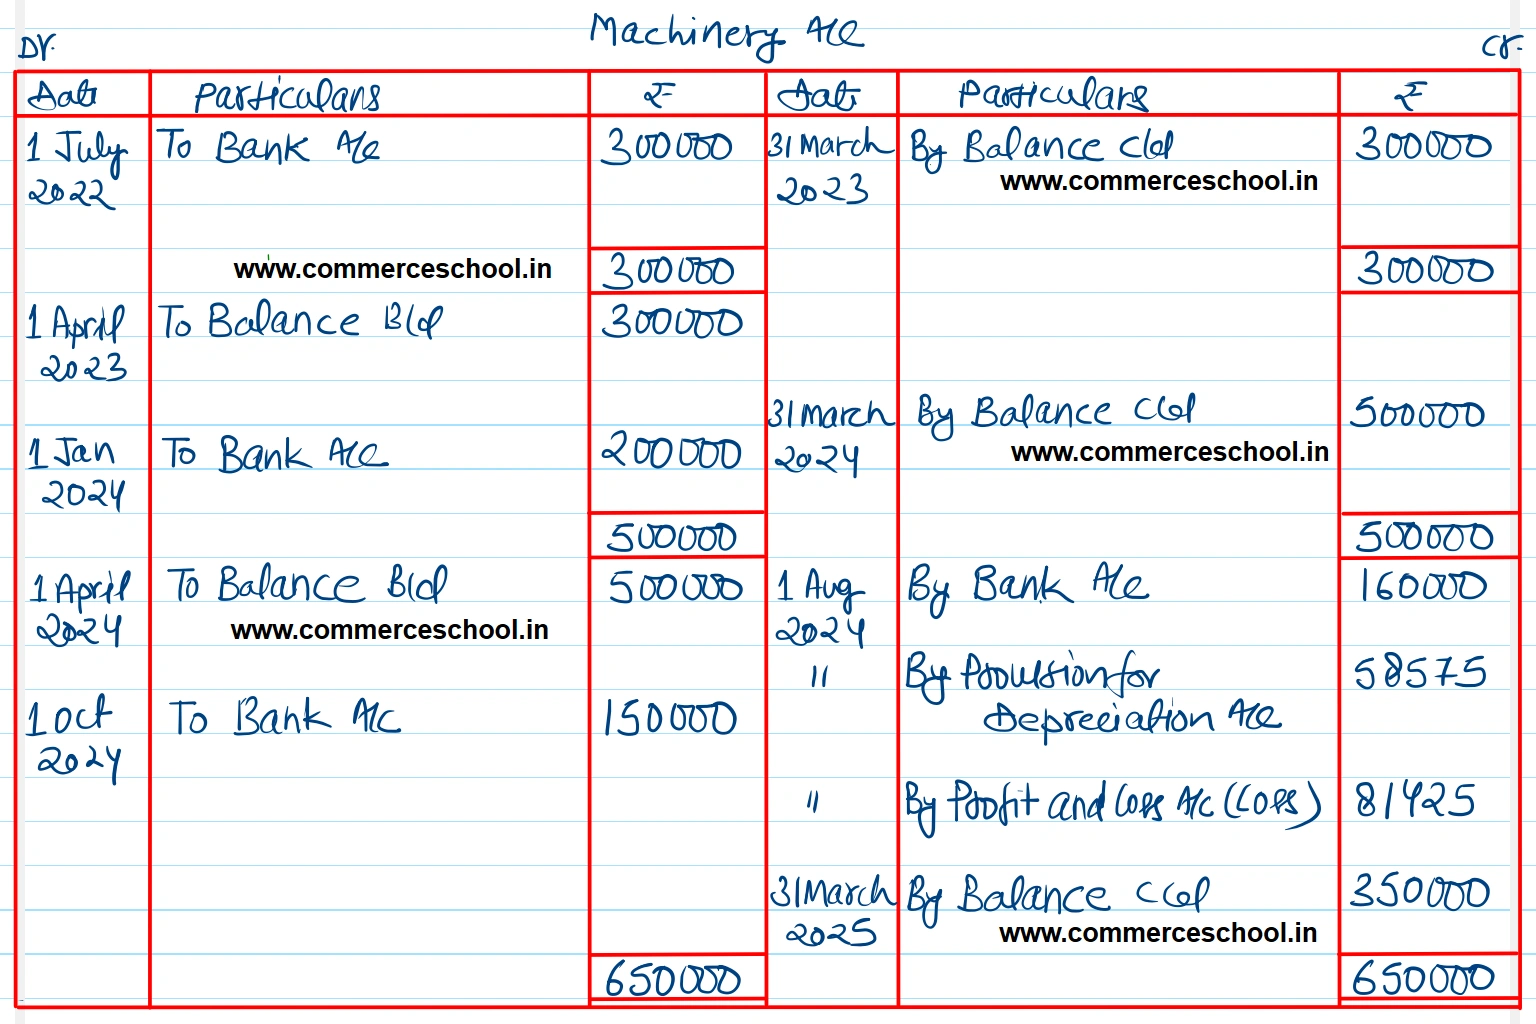 Machinery A/c
Dr. Cr.
Date Particulars ₹ Date Particulars ₹
1 July To Bank A/c 300000 31 March By Balance c/d 300000
2022 2023 www.commerceschool.in
www.commerceschool.in 300000 300000
1 April To Balance B/d 300000
2023
31 March By Balance C/d 500000
1 Jan To Bank A/c 200000 2024 www.commerceschool.in
2024
500000 500000
1 April To Balance B/d 500000 1 Aug By Bank A/c 160000
2024 www.commerceschool.in 2024
" By Provision for 58575
1 Oct To Bank A/c 150000 Depreciation A/c
2024
" By Profit and Loss A/c (Loss) 81425
31 March By Balance C/d 350000
2025 www.commerceschool.in
650000 650000